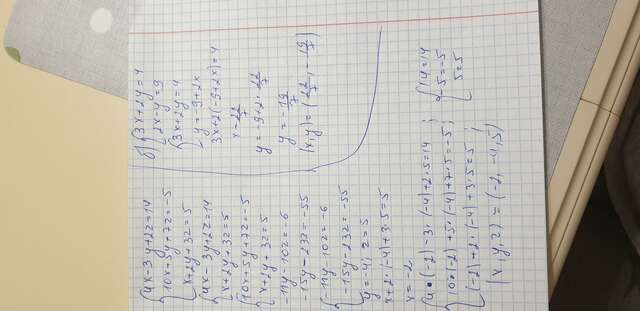 {4x-3y+2z=14
{10x-5y+7z=-5
{x+2y+3z=5
{4x-3y+2z=14
{x+2y+3z=5
{10x-5y+7z=-5
{x+2y+3z=5
{-11y-10z=-6
{-15y-23z=-55
{-11y-10z=-6
{-15y-23z=-55
y=-4; z=5
x+2·(-4)+3·5=5
x=-2
{4·(-2)-3·(-4)+2·5=14;
{10·(-2)+5·(-4)+7·5=-5;
{(-2)+2·(-4)+3·5=5;
{14=14
{-5=-5
{5=5
(x,y,z)=(-2,-4,5)
б) {3x+2y=4
{2x-y=9
{3x+2y=4
{y=-9+2x
3x+2(-9+2x)=4
x=22/7
y=-9+2·22/7
y=-19/7
(x,y)=(22/7,-19/7)